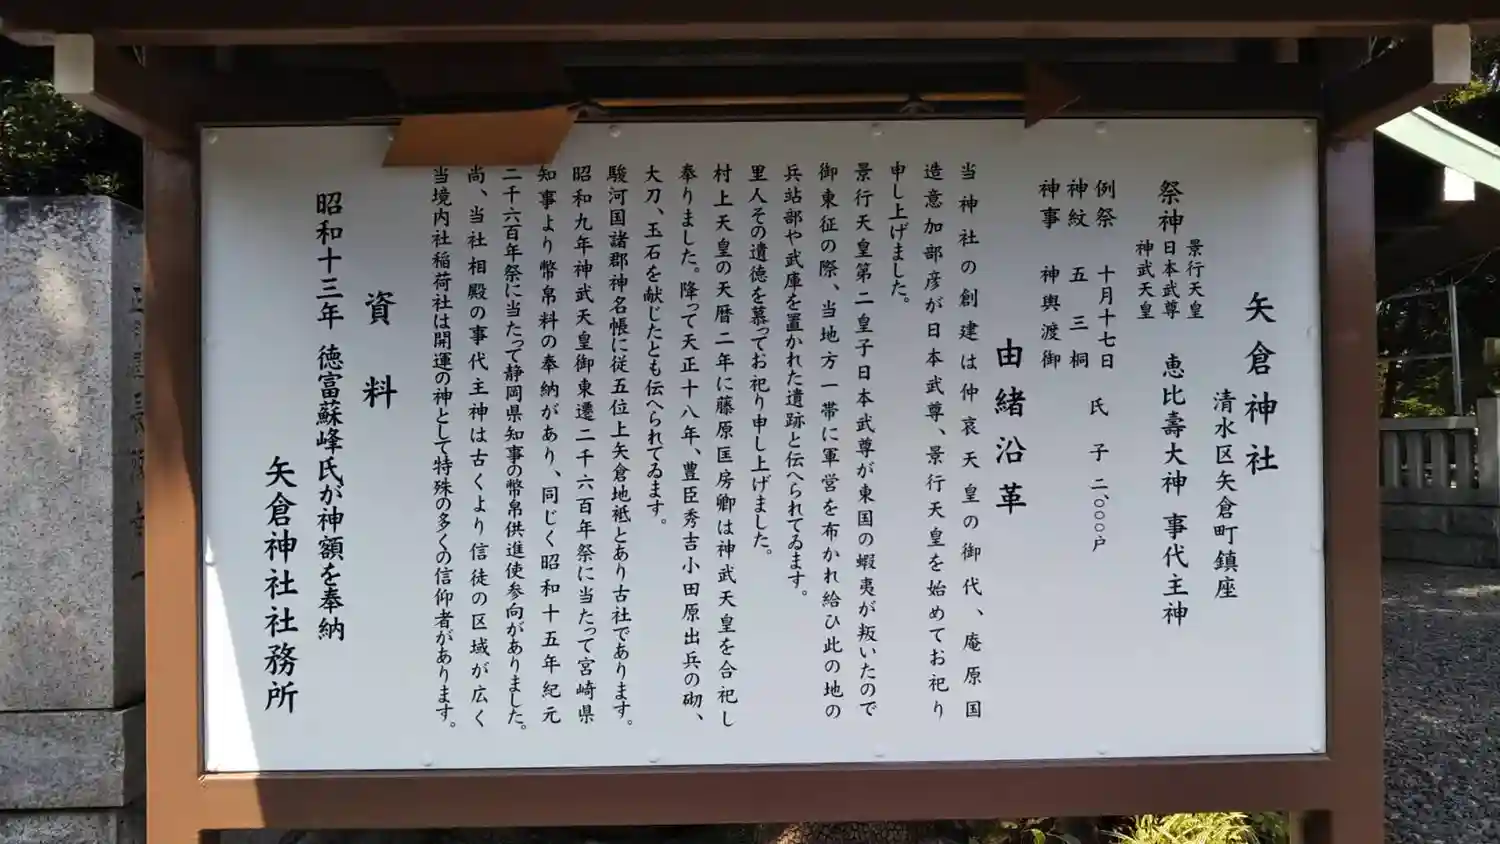 矢倉神社
清水区矢倉町鎮座
景行天皇
祭神 日本武尊 恵比壽大神 事代主神
神武天皇
例祭 十月十七日 氏子 二、〇〇〇戸
神紋 五三桐
神事 神輿渡御
由緒沿革
当神社の創建は仲哀天皇の御代、庵原国
造意加部彦が日本武尊、景行天皇を始めてお祀り
申し上げました。
景行天皇第二皇子日本武尊が東国の蝦夷が叛いたので
御東征の際、当地方一帯に軍営を布かれ給ひ此の地の
兵站部や武庫を置かれた遺跡と伝へられてゐます。
里人その遺徳を慕ってお祀り申し上げました。
村上天皇の天暦二年に藤原匡房卿は神武天皇を合祀し
奉りました。降って天正十八年、豊臣秀吉小田原出兵の砌、
大刀、玉石を献じたとも伝へられてゐます。
駿河国諸郡神名帳に従五位上矢倉地祗とあり古社であります。
昭和九年神武天皇御東遷二千六百年祭に当たって宮崎県
知事より幣帛料の奉納があり、同じく昭和十五年紀元
二千六百年祭に当たって静岡県知事の幣帛供進使参向がありました。
尚、当社相殿の事代主神は古くより信徒の区域が広く
当境内社稲荷社は開運の神として特殊の多くの信仰者があります。
資料
昭和十三年 徳富蘇峰氏が神額を奉納
矢倉神社社務所